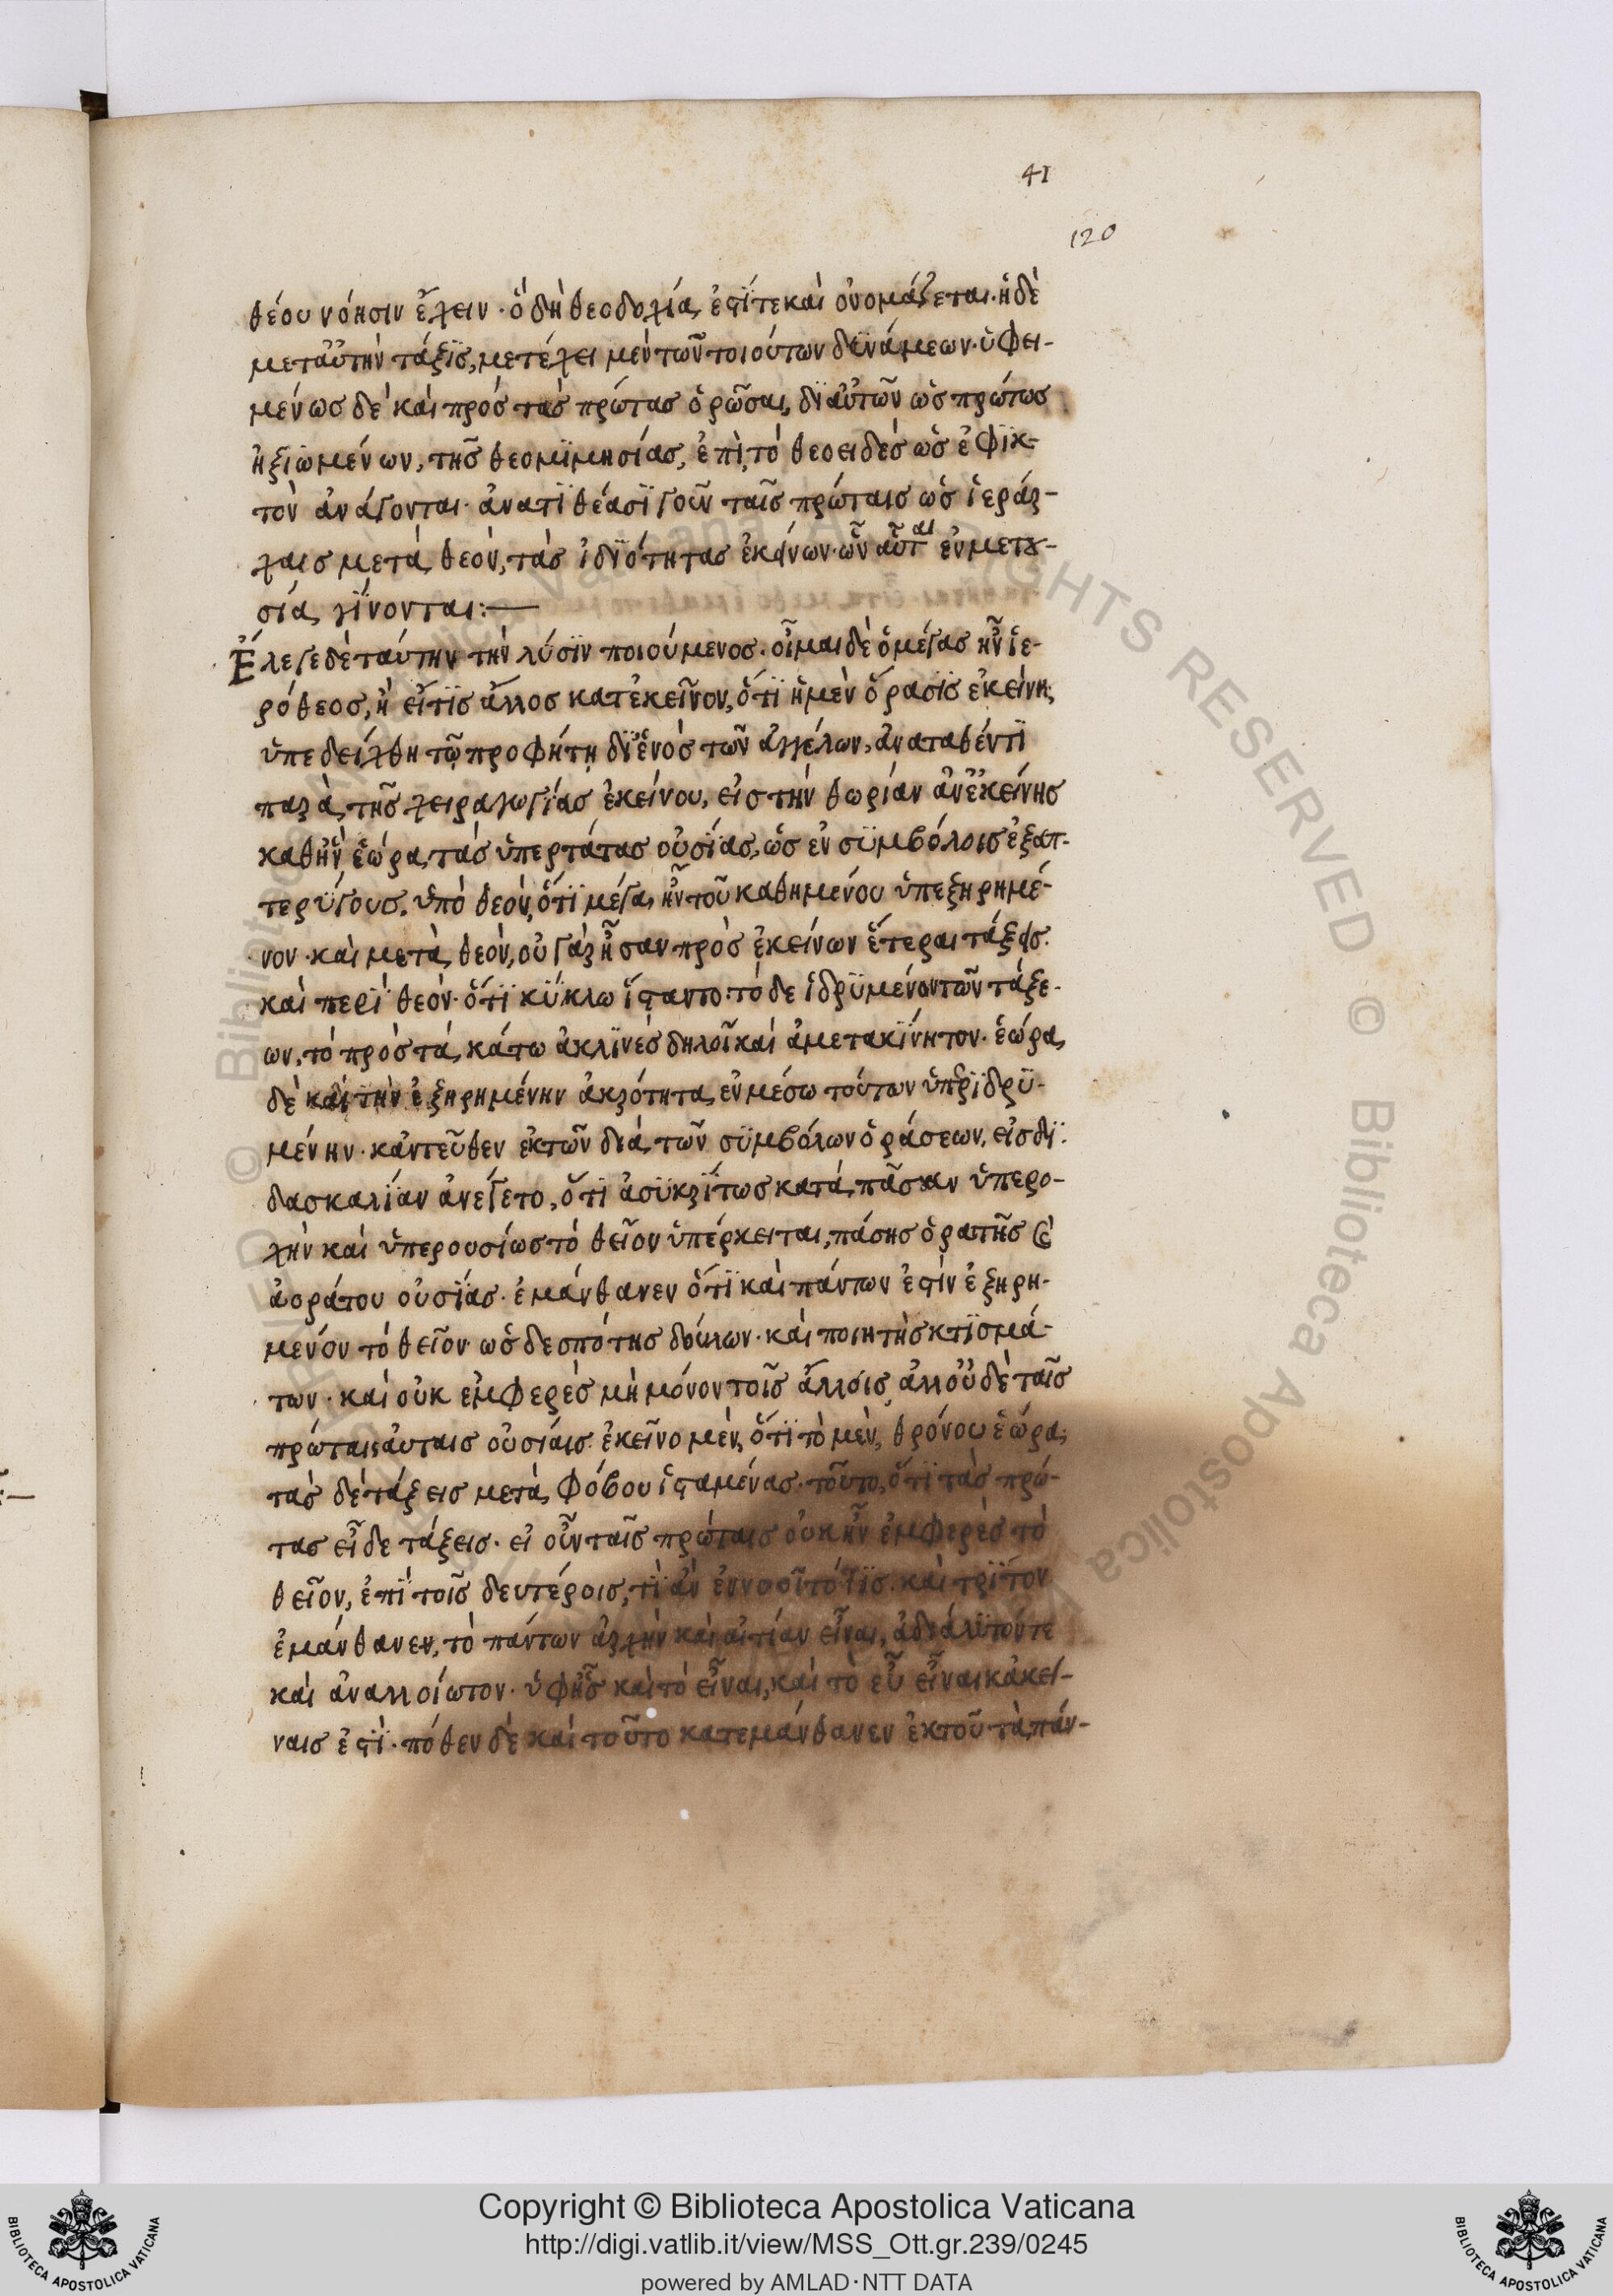 41
120
θέου νόησιν ἔχειν· ὃ δὴ θεοδοχία, ἐστί τε καὶ ὀνομάζεται· ἡ δὲ
μεταὐτὴν τάξϊς, μετέχει μὲν τῶν τοιούτων δϋνάμεων· ὑφει-
μένως δὲ καὶ πρὸς τὰς πρώτας ὁρῶσαι, δϊ αὐτῶν ὡς πρώτως
ἠξϊωμένων, τῆς θεομϊμησίας, ἐπὶ τὸ θεοειδὲς ὡς ἐφϊκ-
τὸν ἀνάγονται· ἀνατϊθέασϊ γοῦν ταῖς πρώταις ὡς ἱεράρ-
χαις μετὰ θεὸν, τὰς ἰδϊότητας ἐκείνων· ὧν αὗται ἐν μετου-
σία γίνονται:—
Ἔλεγε δὲ ταύτην τὴν λύσϊν ποιούμενος· οἶμαι δὲ ὁ μέγας ἦν ἱε-
ρόθεος, ἢ εἴ τϊς ἄλλος κατ ἐκεῖνον, ὅτϊ ἡ μὲν ὅρασϊς ἐκείνη,
ὑπεδείχθη τῷ προφήτη δϊ ἑνὸς τῶν ἀγγέλων, ἀναταθέντϊ
παρὰ τῆς χειραγωγίας ἐκείνου, εἰς τὴν θωρίαν ἀν ἐκείνης
καθ ἣν ἑώρα, τὰς ὑπερτάτας οὐσϊας, ὡς ἐν σϋμβόλοις ἑξαπ-
τερϋγους. ὑπὸ θεὸν, ὅτϊ μέγα, ἦν τοῦ καθημένου ὑπεξηρημέ-
νον· καὶ μετὰ θεὸν, οὐ γὰρ ἦσαν πρὸς ἐκείνων ἕτεραι τάξεις.
καὶ περὶ θεὸν· ὅτϊ κϋκλω ἵσταντο· τὸ δε ἱδρϋμένον τῶν τάξε-
ων, τὸ πρὸς τὰ κάτω ἀκλϊνὲς δηλοῖ καὶ ἀμετακϊνητον· ἑώρα,
δὲ καὶ τὴν ἐξηρημένην ἀκρότητα, ἐν μέσω τούτων ὑπερϊδρϋ-
μένην· κἀντεῦθεν ἐκ τῶν διὰ τῶν σϋμβόλων ὁράσεων, εἰς δϊ-
δασκαλίαν ἀνείγετο, ὅτϊ ἀσϋκρϊτως κατὰ πᾶσαν ὑπερο-
χὴν καὶ ὑπερουσίως τὸ θεῖον ὑπέρκειται, πάσης ὁρατῆς καὶ
ἀοράτου οὐσϊας· ἐμάνθανεν ὅτϊ καὶ πάντων ἐστὶν ἐξηρη-
μένον τὸ θεῖον· ὡς δεσπότης δούλων· καὶ ποιητὴς κτϊσμά-
των· καὶ οὐκ ἐμφερὲς μὴ μόνον τοῖς ἄλλοις, ἀλλ οὐδὲ ταῖς
πρώταις αὐταῖς οὐσίαις· ἐκεῖνο μὲν, ὅτϊ τὸ μὲν, θρόνου ἑώρα,
τὰς δὲ τάξεις μετὰ φόβου ἱσταμένας· τοῦτο, ὅτϊ τὰς πρώ-
τας εἶδε τάξεις· εἰ οὖν ταῖς πρώταις οὐκ ἦν ἐμφερὲς τὸ
θεῖον, ἐπὶ τοῖς δευτέροις, τϊ ἂν ἐννοοῖτό τϊς. καὶ τρϊτον
ἐμάνθανεν, τὸ πάντων ἀρχὴν καὶ αἰτίαν εἶναι, ἀδιάλϋτόν τε
καὶ ἀναλλοίωτον· ὑφ ἧς καὶ τὸ εἶναι, καὶ τὸ εὖ εἶναι κἀκεί-
ναις ἐστϊ· πόθεν δὲ καὶ τοῦτο κατεμάνθανεν ἐκ τοῦ τὰ πάν-
Copyright © Biblioteca Apostolica Vaticana
http://digi.vatlib.it/view/MSS_Ott.gr.239/0245
powered by AMLAD·NTT DATA